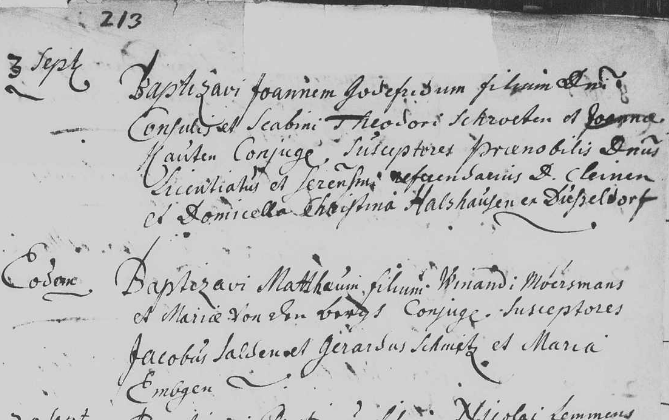 213
3 Sept Baptizavi Joannem Godefridum filium Dni
Consulis et Scabini Theodori Schroeten et Joannæ
Kauten Conjuge, Susceptores Prænobilis Dnus
Licentiatus et Serenissmi referendarius D. Clemen
et Domicella Christina Halshausen ex Düsseldorf
Eodem Baptizavi Matthæum filium Winandi Moersmans
et Mariæ Von den bergs Conjuge. Susceptores
Jacobus Salden et Gerardus Schmitz et Maria
Embgen
Nicolas Lemmens